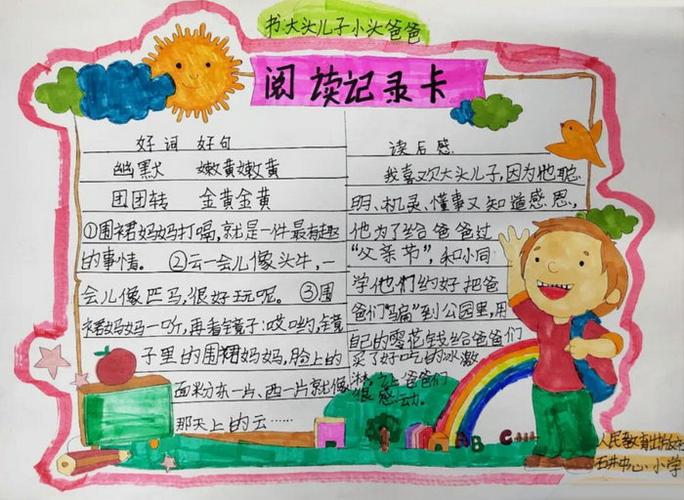 书:大头儿子小头爸爸
阅读记录卡
好词 好句
幽默 嫩黄嫩黄
团团转 金黄金黄
①围裙妈妈打嗝,就是一件最有趣
的事情。 ②云一会儿像头牛,一
会儿像匹马,很好玩呢。 ③围
裙妈妈一听,再看镜子:哎哟,镜
子里的围裙妈妈,脸上的
面粉东一片、西一片就像
那天上的云……
读后感
我喜欢大头儿子,因为他聪
明、机灵、懂事又知道感恩,
他为了给爸爸过
“父亲节”,和小同
学他们约好把爸
爸们“骗”到公园里,用
自己的零花钱给爸爸们
买了好吃的冰激
淋,让爸爸们
很感动。
ABC
人民教育出版社
石井中心小学